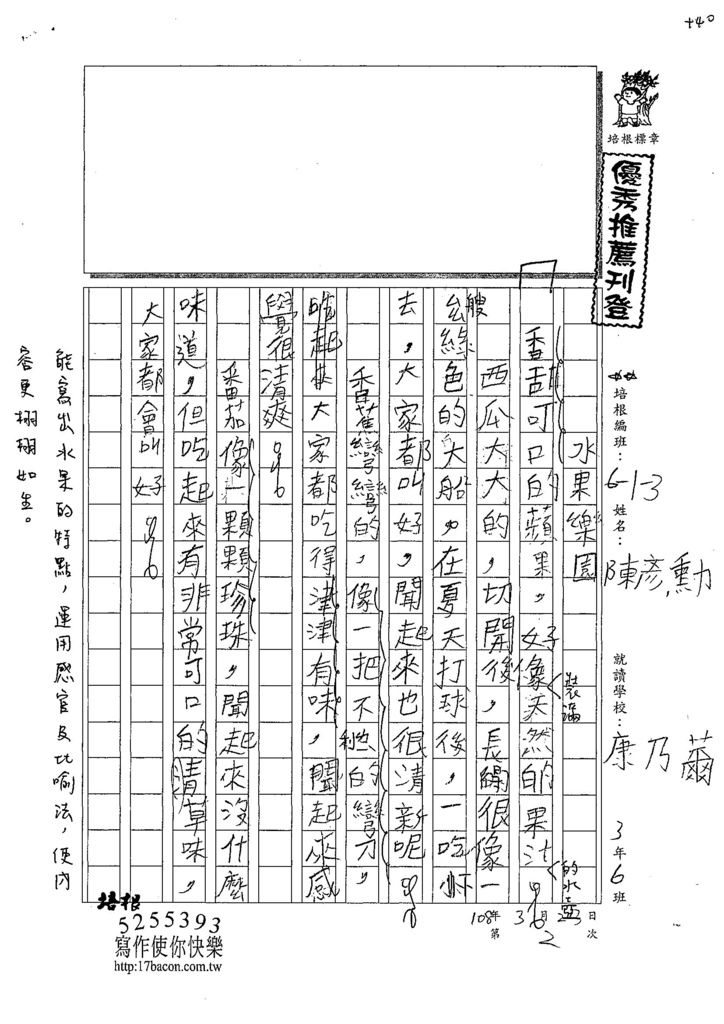 +40
培根標章
優秀推薦刊登
培根編班：6-1-3 姓名：陳彥勳 就讀學校：康乃薾 3年6班
108年3月23日
第2次
水果樂園
香甜可口的蘋果，好像天然的果汁。
裝滿
的水壺
西瓜大大的，切開後，長得很像一
艘綠色的大船。在夏天打球後，一吃下
去，大家都叫好，聞起來也很清新呢。
香蕉彎彎的，像一把不利的彎刀，
起來大家都吃得津津有味，聞起來感
覺很清爽。
番茄像一顆顆珍珠，聞起來沒什麼
味道，但吃起來有非常可口的清草味，
大家都會叫好。
能寫出水果的特點，運用感官及比喻法，使內
容更栩栩如生。
培根
5255393
寫作使你快樂
http:17bacon.com.tw